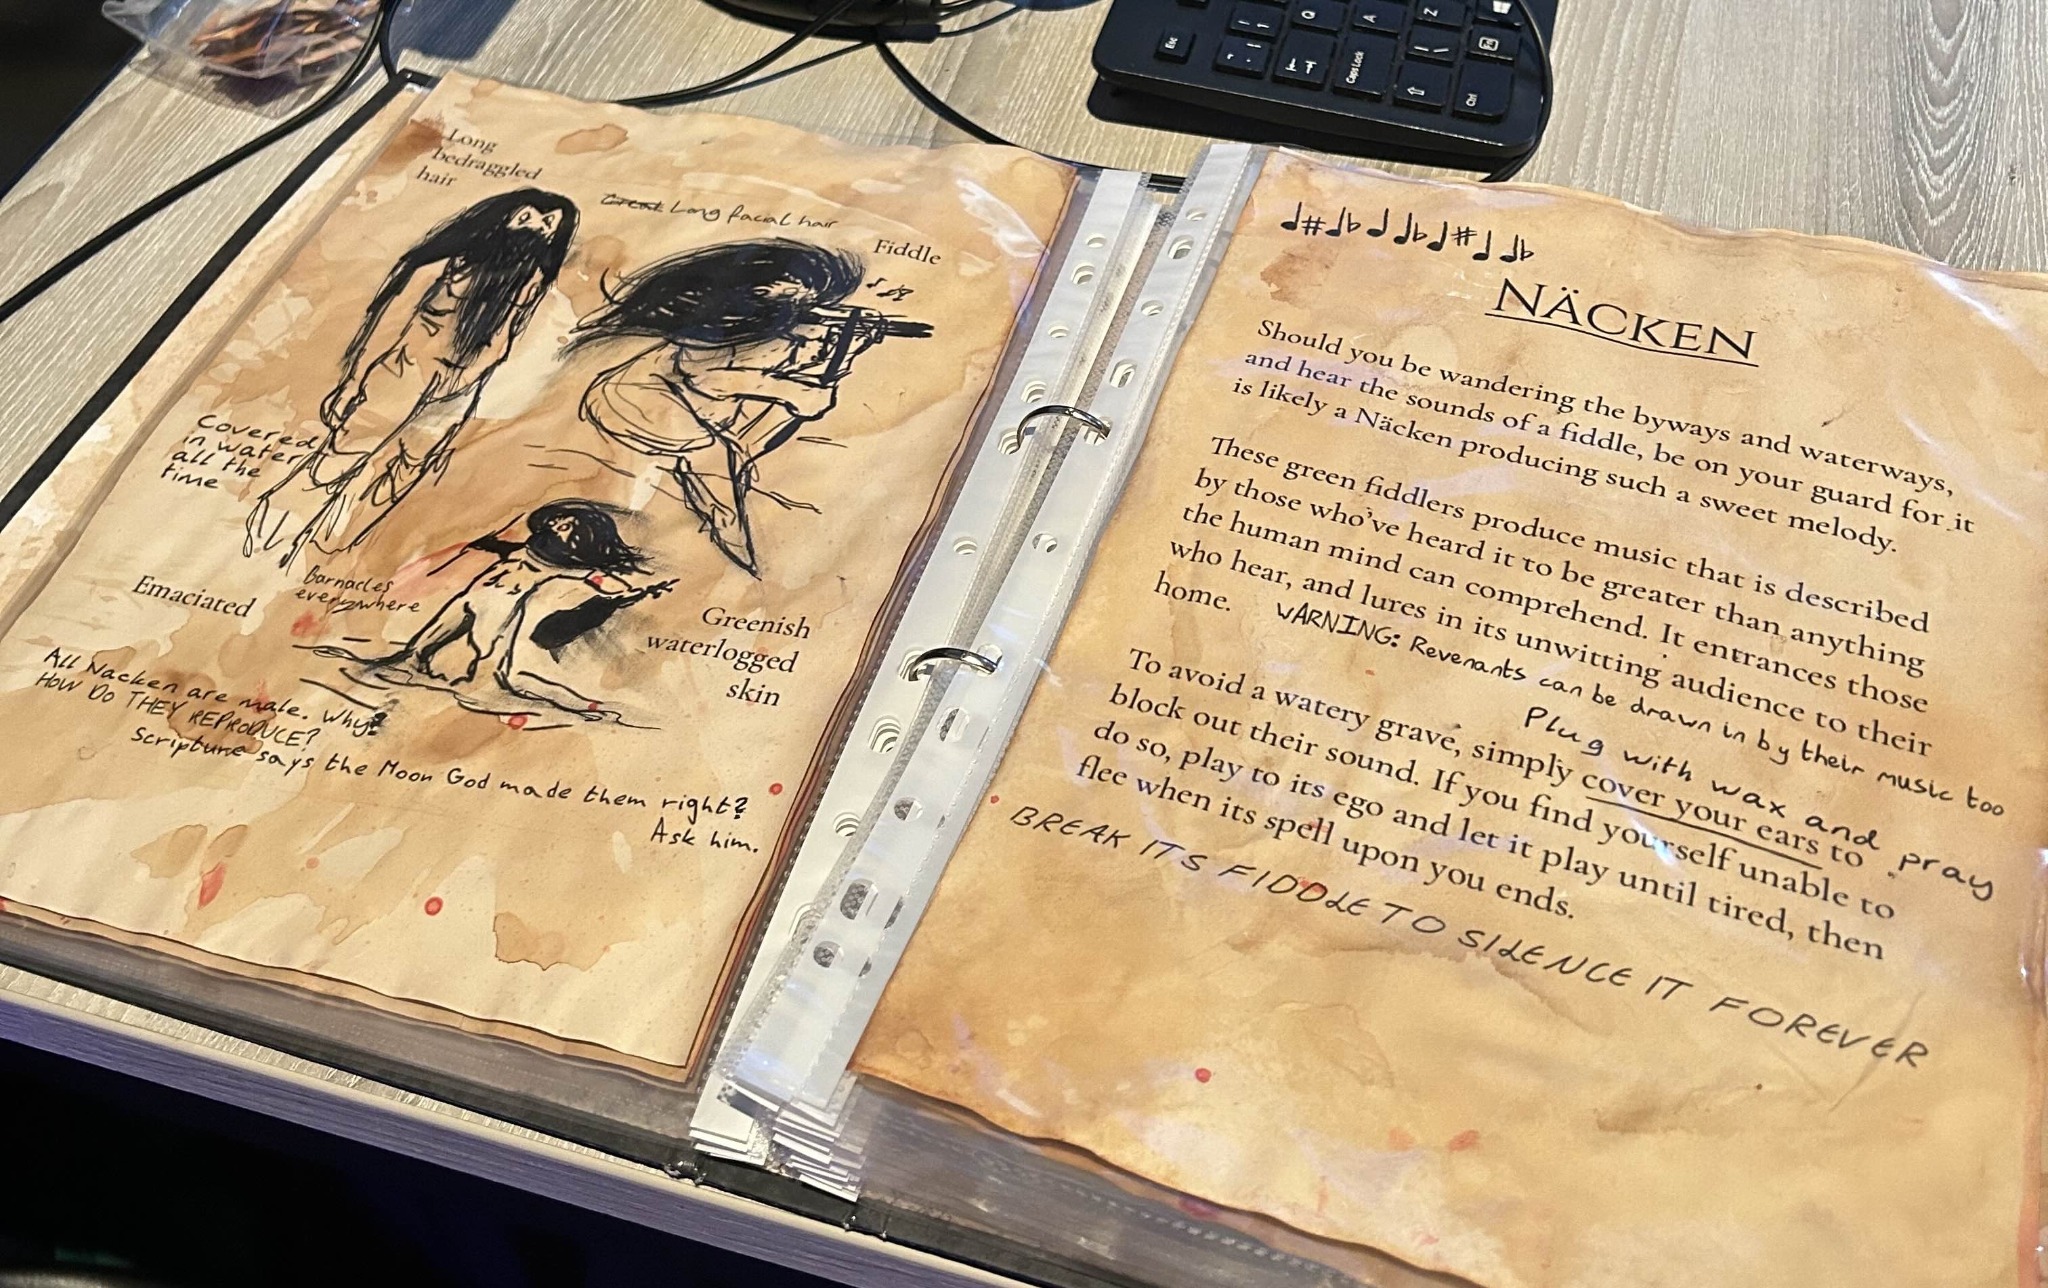 Long
bedraggled
hair
Great Long facial hair
Fiddle
Covered
in water
all the
time
Emaciated
Barnacles
everywhere
Greenish
waterlogged
skin
All Nacken are male. Why?
HOW DO THEY REPRODUCE?
Scripture says the Moon God made them right?
Ask him.
♩#♩♭♩♩♭♩#♩♩♭
NÄCKEN
Should you be wandering the byways and waterways,
and hear the sounds of a fiddle, be on your guard for it
is likely a Näcken producing such a sweet melody.
These green fiddlers produce music that is described
by those who've heard it to be greater than anything
the human mind can comprehend. It entrances those
who hear, and lures in its unwitting audience to their
home.
WARNING: Revenants can be drawn in by their music too
Plug with wax and pray
To avoid a watery grave, simply cover your ears to
block out their sound. If you find yourself unable to
do so, play to its ego and let it play until tired, then
flee when its spell upon you ends.
BREAK ITS FIDDLE TO SILENCE IT FOREVER
Esc
Q
A
Z
Caps Lock
Fn
Ctrl